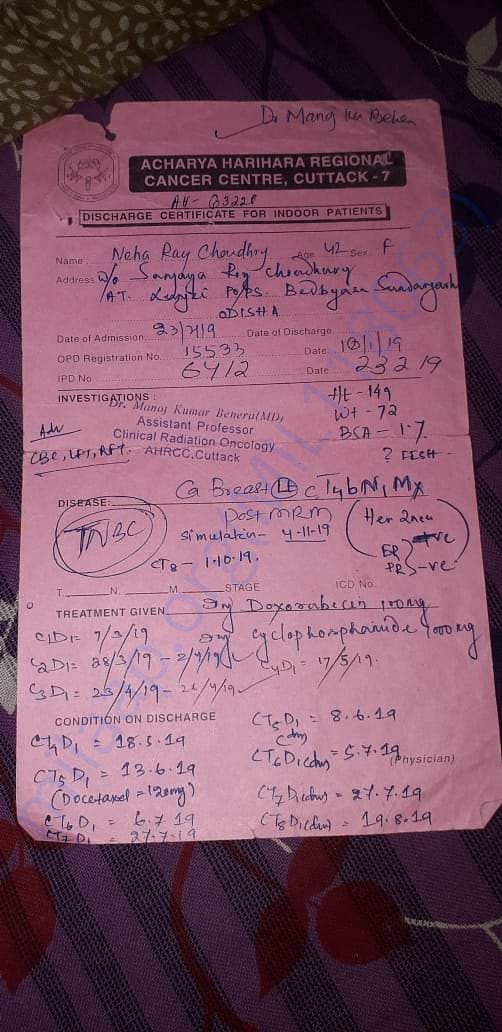 Dr Manoj Ku Behera
ACHARYA HARIHARA REGIONAL
CANCER CENTRE, CUTTACK - 7
DISCHARGE CERTIFICATE FOR INDOOR PATIENTS
Name Neha Ray Choudhry Age 42 Sex F
Address W/o Sanjaya Roy chowdhury
AT. P.O/PS. Sundargarh
ODISHA
Date of Admission 23/2/19 Date of Discharge
OPD Registration No. 15533 Date 18/1/19
IPD No. 6412 Date 23 2 19
INVESTIGATIONS : Ht - 149
Dr. Manoj Kumar Behera(MD) Wt - 72
Assistant Professor BSA - 1.7
Adv Clinical Radiation Oncology
CBC, LFT, RFT. AHRCC, Cuttack ? FISH
DISEASE: Ca Breast Lt cT4bN1Mx
TNBC Post MRM (Her 2neu +ve
Simulation - 4-11-19 ER PR -ve)
CT8 - 1.10.19.
T. N. M. STAGE ICD No.
TREATMENT GIVEN Inj Doxorubicin 100mg
C1D1 = 7/3/19 Inj Cyclophosphamide 1000mg
C2D1 = 28/3/19 - 2/4/19 C4D1 = 17/5/19.
C3D1 = 23/4/19 -
CONDITION ON DISCHARGE CT5D1 = 8.6.19
CT4D1 = 18.5.19 (dm)
CT5D1 = 13.6.19 CT6D1(dm) = 5.7.19 (Physician)
(Docetaxel = 120mg) CT7D1(dm) = 27.7.19
CT6D1 = 6.7.19 CT8D1(dm) = 19.8.19
CT7D1 = 27.7.19